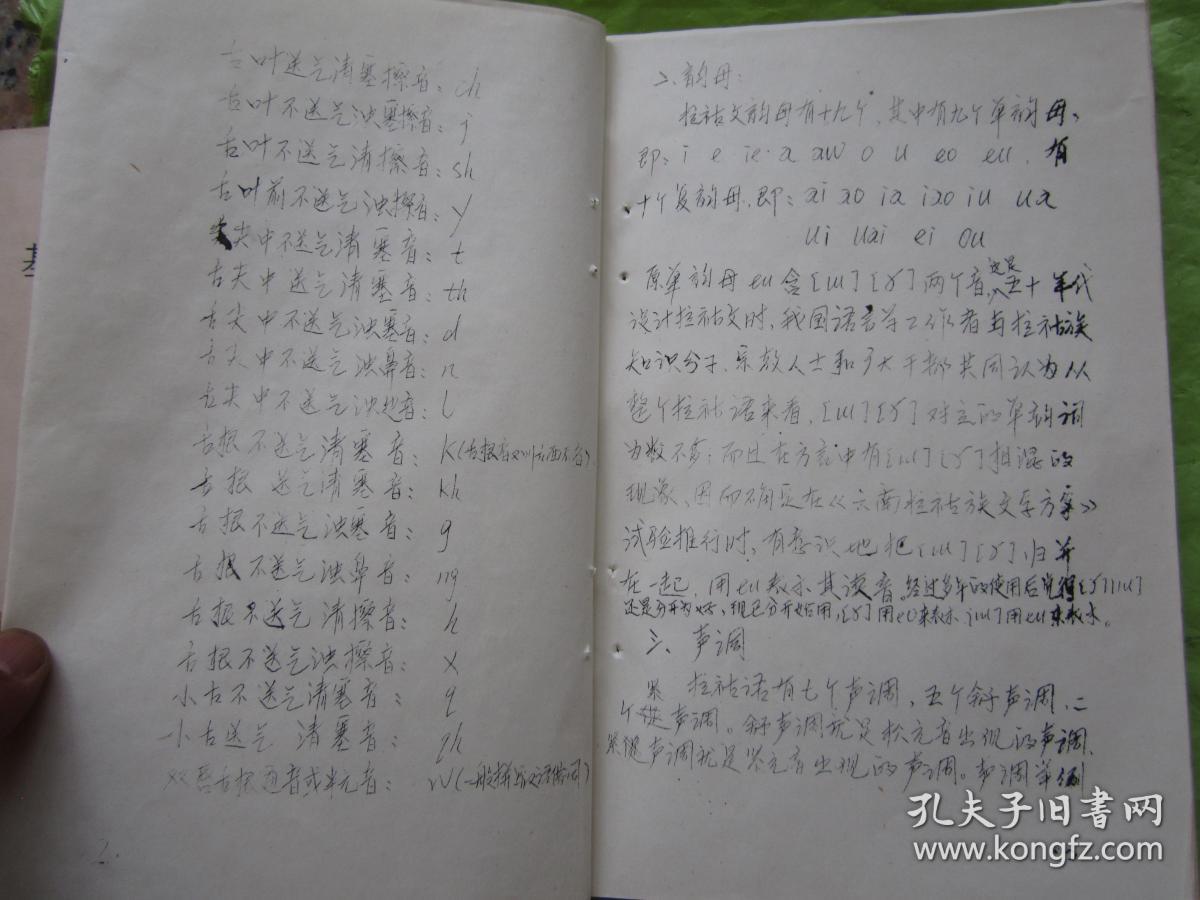 舌叶送气清塞擦音: ch
舌叶不送气浊塞擦音: j
舌叶不送气清擦音: sh
舌叶前不送气浊擦音: y
尖中不送气清塞音: t
舌尖中送气清塞音: th
舌尖中不送气浊塞音: d
舌尖中不送气浊鼻音: n
舌尖中不送气浊边音: l
舌根不送气清塞音: k(舌根音
舌根 送气清塞音: kh
舌根不送气浊塞音: g
舌根不送气浊鼻音: ng
舌根不送气清擦音: h
舌根不送气浊擦音: x
小舌不送气清塞音: q
小舌送气 清塞音: qh
双唇舌根通音或半元音: w(一般拼汉语借词)
2.
二、韵母:
拉祜文韵母有十九个,其中有九个单韵母,
即: i e ie a aw o u eo eu. 有
十个复韵母,即: ai ao ia iao iu ua
ui uai ei ou
原单韵母eu含[ɯ][ɤ]两个音,这是五十年代
设计拉祜文时,我国语言学工作者与拉祜族
知识分子、宗教人士和广大干部共同认为从
整个拉祜语来看,[ɯ][ɤ]对立的单韵词
为数不多;而且在方言中有[ɯ][ɤ]相混的
现象,因而确定在《云南拉祜族文字方案》
试验推行时,有意识地把[ɯ][ɤ]归并
在一起,用eu表示其读音。经过多年的使用后觉得[ɤ][ɯ]
还是分开为好,现已分开使用,[ɤ]用eo来表示[ɯ]用eu来表示。
三、声调
拉祜语有七个声调,五个舒声调,二
个紧促声调。舒声调就是松元音出现的声调,
紧促声调就是紧元音出现的声调。声调举例
孔夫子旧书网
www.kongfz.com